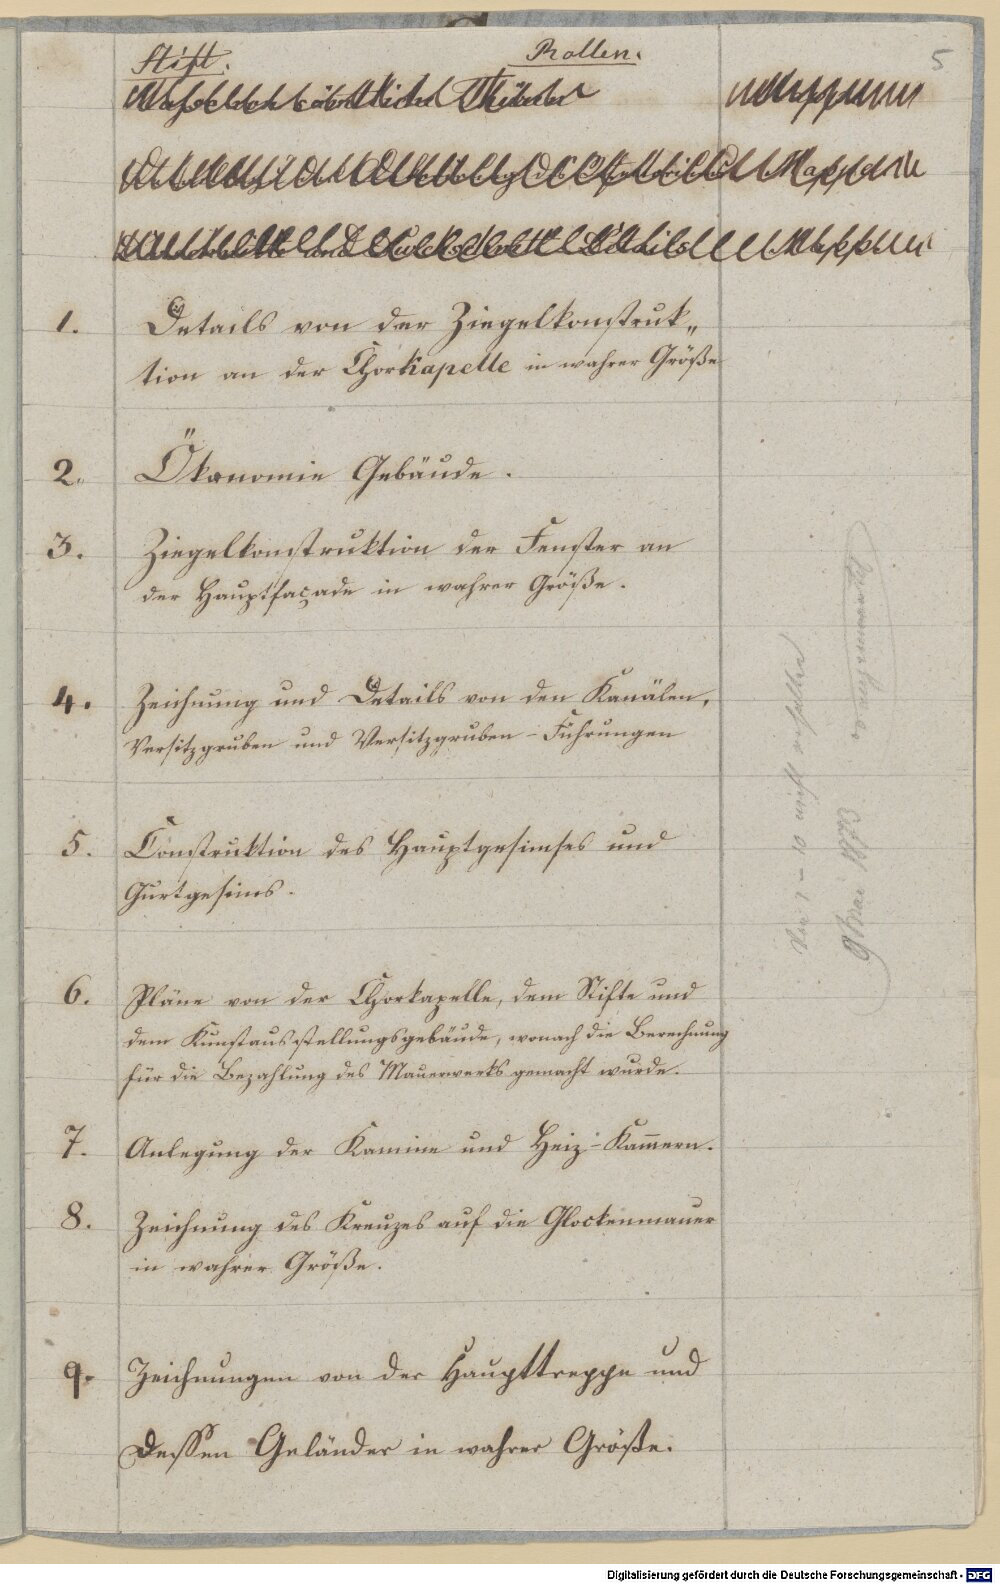 Stift. Rollen. 5
sämtlicher Thüren
Mappe
Mappe
Details Mappe
1. Details von der Ziegelkonstruk„
tion an der Chorkapelle in wahrer Größe
2. Ökonomie Gebäude.
3. Ziegelkonstruktion der Fenster an
der Hauptfaçade in wahrer Größe.
4. Zeichnung und Details von den Kanälen,
Versitzgruben und Versitzgruben-Führungen
5. Construktion des Hauptgesimses und
Gurtgesims.
6. Pläne von der Chorkapelle, dem Stifte und
dem Kunstausstellungsgebäude, wonach die Berechnung
für die Bezahlung des Mauerwerks gemacht wurde.
7. Anlegung der Kamine und Heiz-Kam̅ern.
8. Zeichnung des Kreuzes auf die Glockenmauer
in wahrer Größe.
9. Zeichnungen von der Haupttreppe und
Dessen Geländer in wahrer Größe.
1-10 nicht erhalten
9 Mai 1873
Digitalisierung gefördert durch die Deutsche Forschungsgemeinschaft - DFG